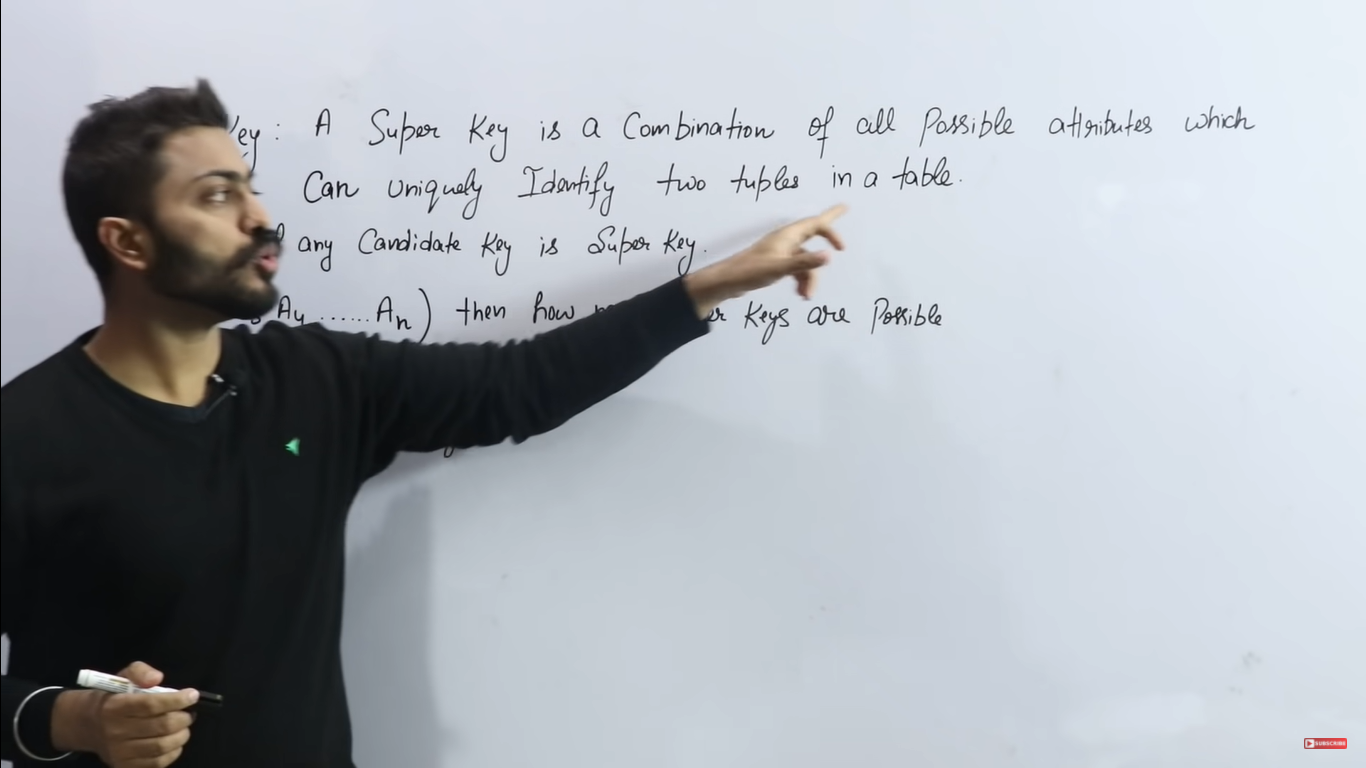 Key: A Super Key is a Combination of all Possible attributes which
Can uniquely Identify two tuples in a table.
any Candidate Key is Super Key.
A4 ...... An) then how Keys are Possible
SUBSCRIBE